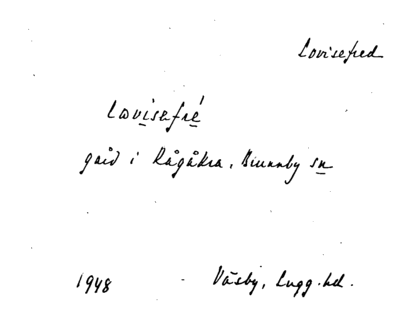 Lovisefred
Lovisefré
gård i Rågåkra, Brunnby sn
1948 Väsby, Lugg. hd.